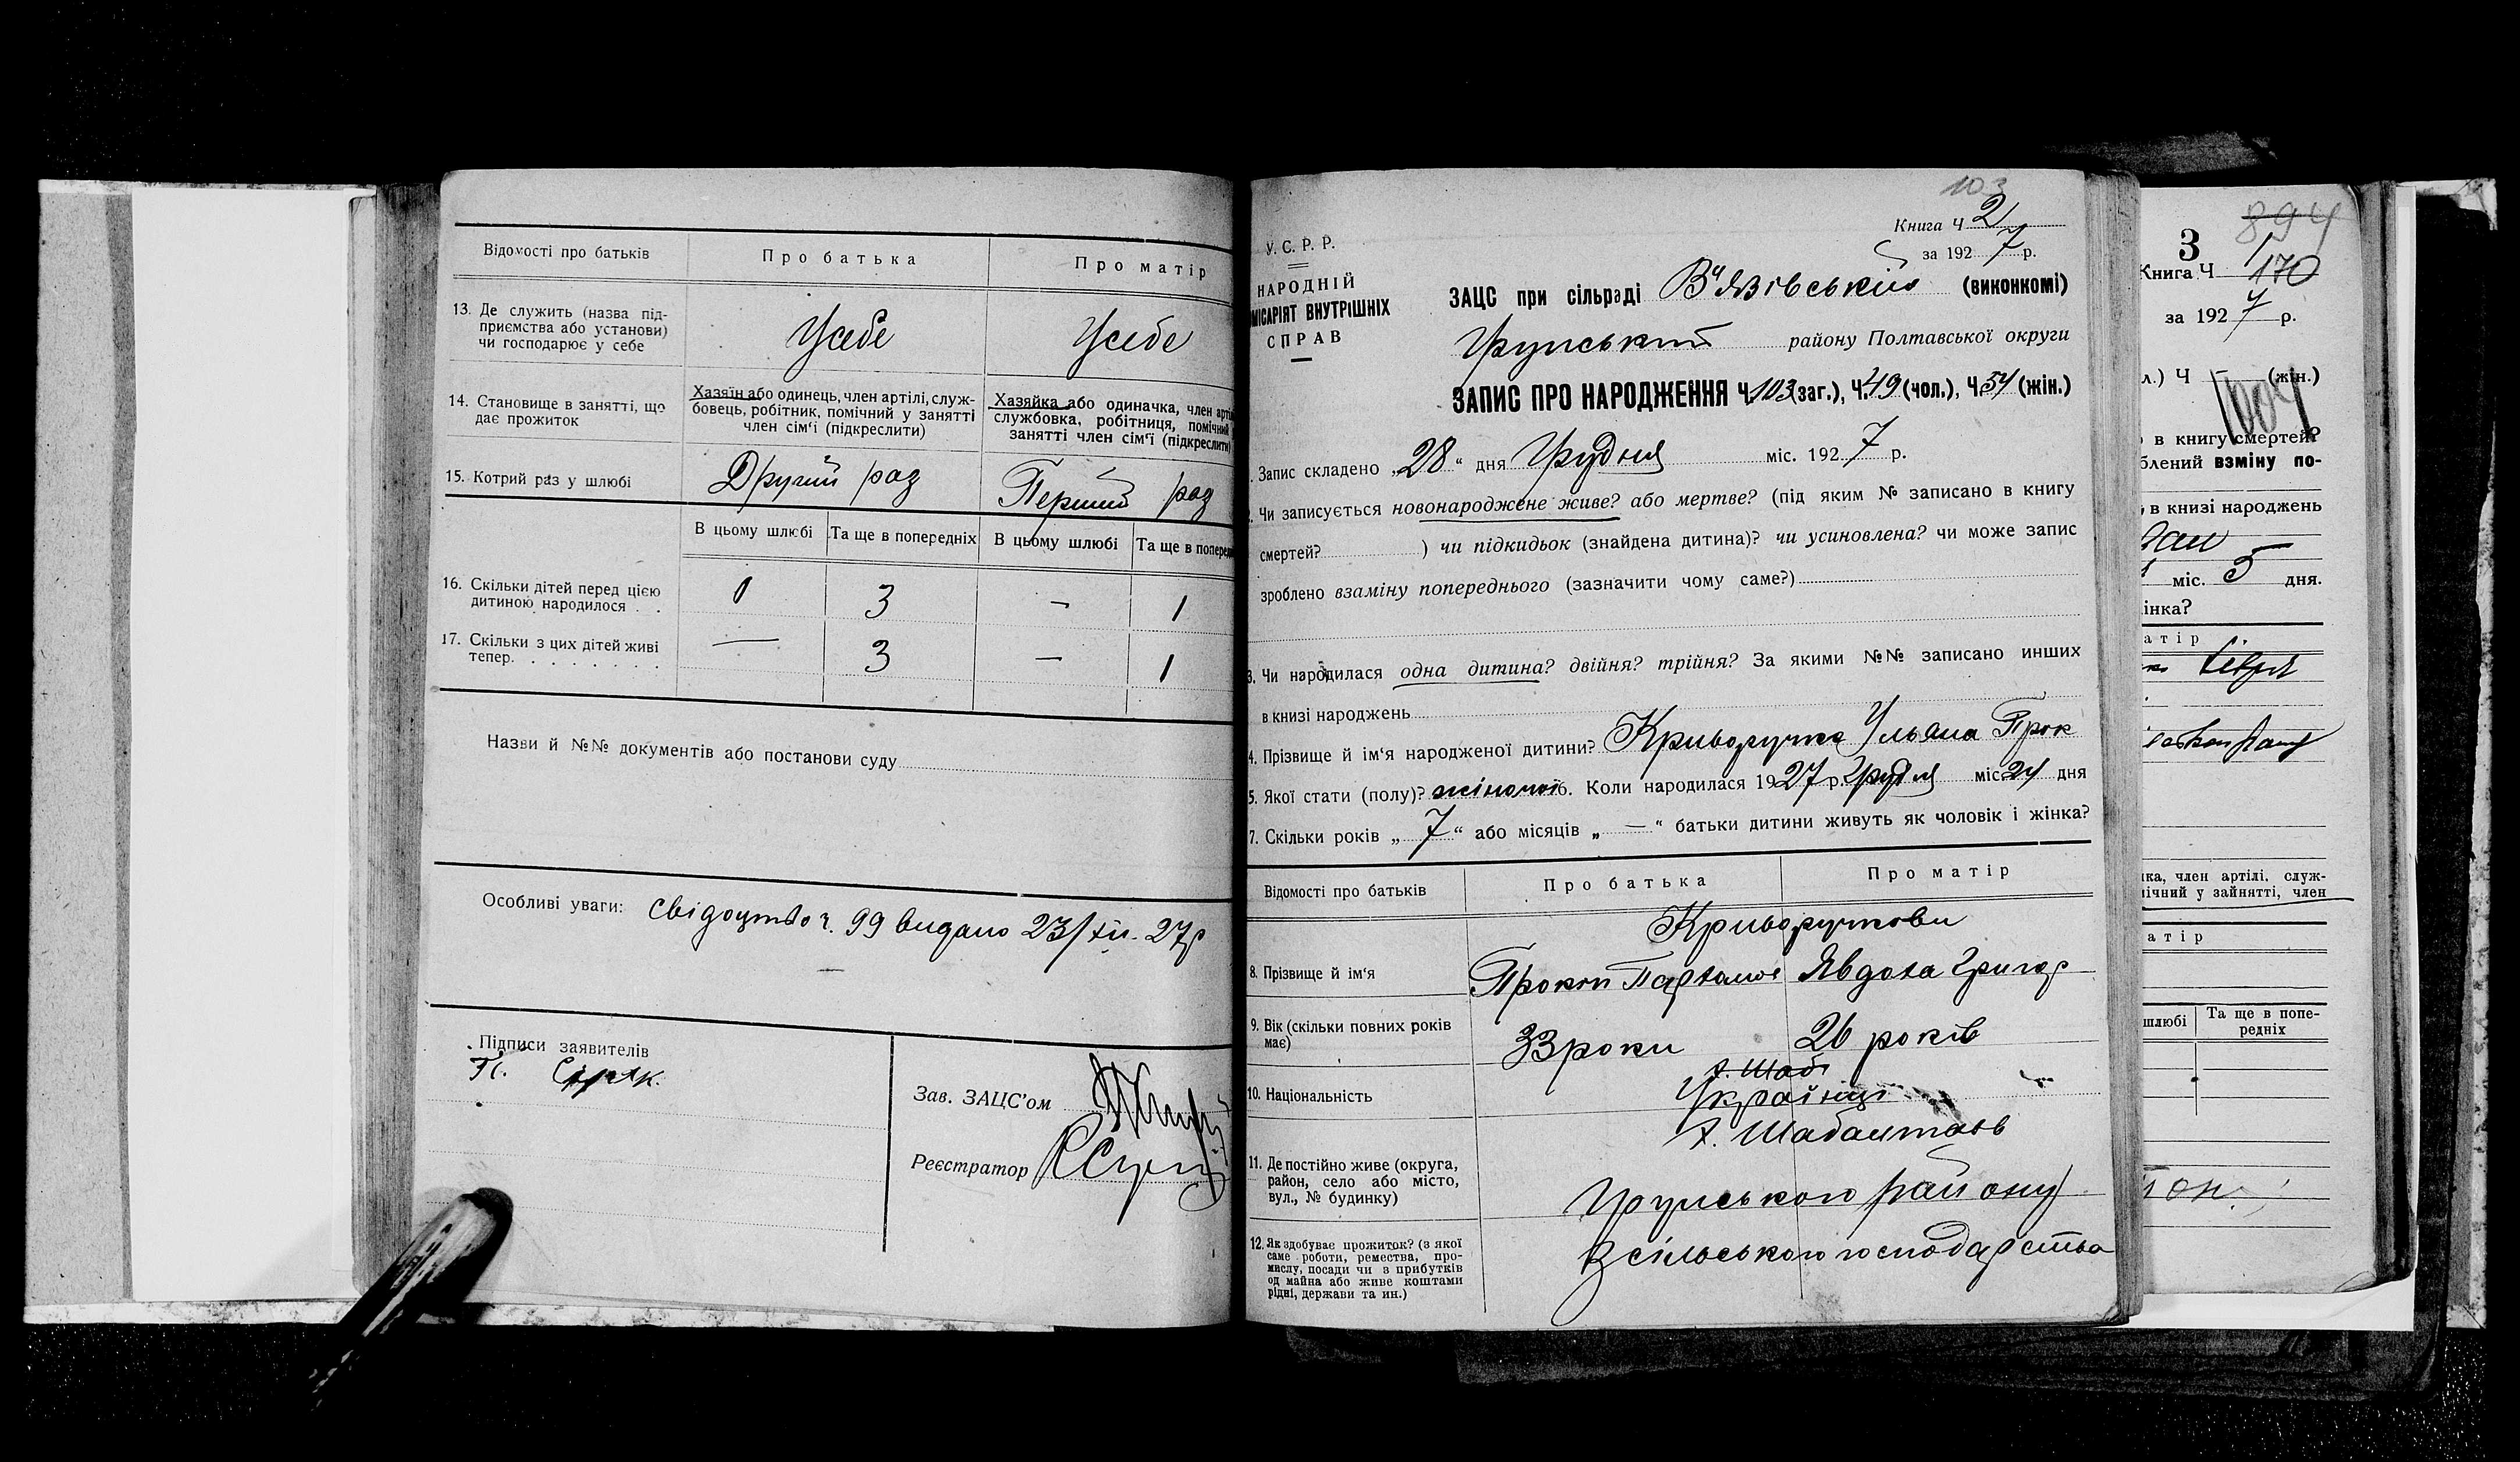 Відомості про батьків
Про батька
Про матір
13. Де служить (назва під-
приємства або установи)
чи господарює у себе
Усебе
Усебе
14. Становище в занятті, що
дає прожиток
Хазяїн або одинець, член артілі, служ-
бовець, робітник, помічний у занятті
член сім'ї (підкреслити)
Хазяйка або одиначка, член арті
службовка, робітниця, помічний
занятті член сім'ї (підкреслити)
15. Котрий раз у шлюбі
Другий раз
Перший раз
В цьому шлюбі
Та ще в попередніх
В цьому шлюбі
Та ще в поперед
16. Скільки дітей перед цією
дитиною народилося . .
0
3
—
1
17. Скільки з цих дітей живі
тепер. . . . . . . .
—
3
—
1
Назви й №№ документів або постанови суду
Особливі уваги: Свідоцтво ч. 99 видано 23/XII. 27р
—
Підписи заявителів
Зав. ЗАЦС'ом
Реєстратор
103
Книга Ч 2
за 1927 р.
У. С. Р. Р.
НАРОДНІЙ
МІСАРІЯТ ВНУТРІШНІХ
СПРАВ
ЗАЦС при сільраді В'язівській (виконкомі)
району Полтавської округи
ЗАПИС ПРО НАРОДЖЕННЯ Ч.103 (заг.), Ч.49 (чол.), Ч.54 (жін.)
Запис складено „28“ дня Грудня міс. 1927 р.
Чи записується новонароджене живе? або мертве? (під яким № записано в книгу
смертей? ) чи підкидьок (знайдена дитина)? чи усиновлена? чи може запис
зроблено взаміну попереднього (зазначити чому саме?)
3. Чи народилася одна дитина? двійня? трійня? За якими №№ записано инших
в книзі народжень
4. Прізвище й ім'я народженої дитини? Криворучко Ульяна Прок
5. Якої стати (полу)? жіночої 6. Коли народилася 1927 р. Грудня міс 24 дня
7. Скільки років „7“ або місяців „—“ батьки дитини живуть як чоловік і жінка?
Відомості про батьків
Про батька
Про матір
Криворучкови
8. Прізвище й ім'я
Прокоп Пархомов
Явдоха Григор
9. Вік (скільки повних років
має)
33 роки
26 років
10. Національність
Українці
11. Де постійно живе (округа,
район, село або місто,
вул., № будинку)
х. Шабалтаєв
району
12. Як здобуває прожиток? (з якої
саме роботи, ремества, про-
мислу, посади чи з прибутків
од майна або живе коштами
рідні, держави та ин.)
З сільського господарства
894
3
Книга Ч 170
за 1927 р.
л.) Ч — (жін.)
1004
в книгу смертей?
блений взміну по-
в книзі народжень
міс. 5 дня.
інка?
атір
ка, член артілі, служ-
мічний у зайнятті, член
атір
шлюбі
Та ще в попе-
редніх